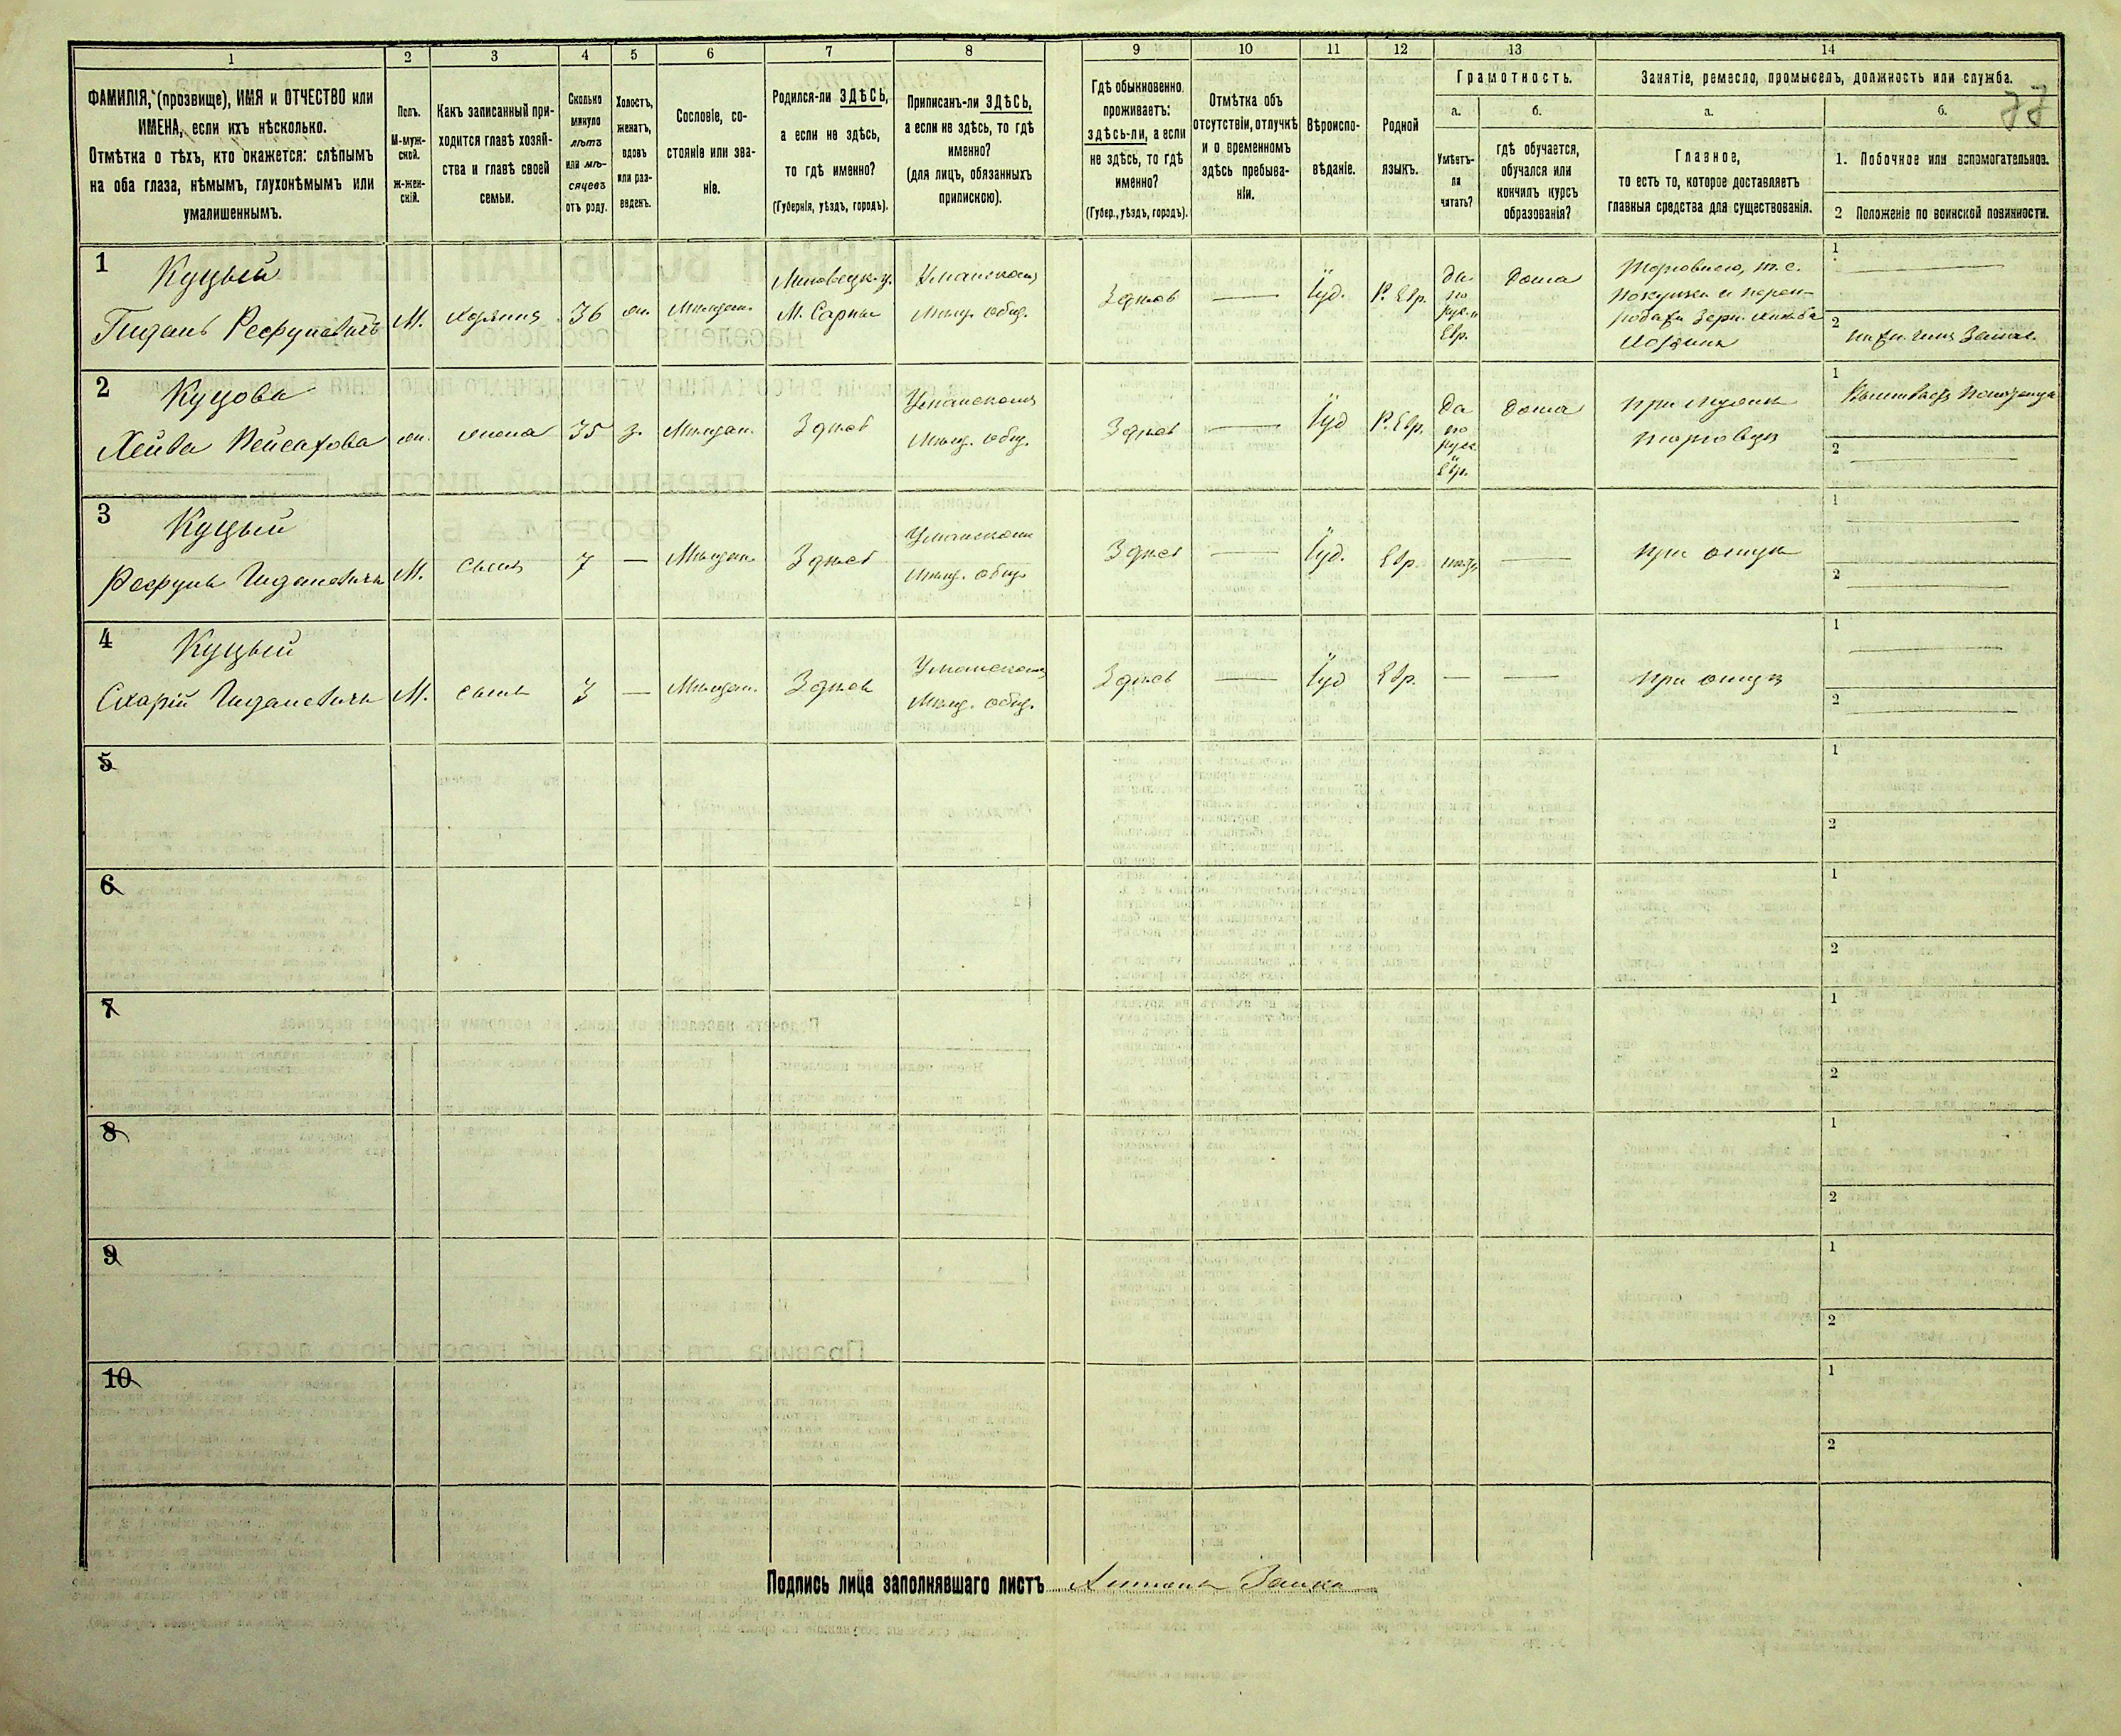 1 2 3 4 5 6 7 8 9 10 11 12 13 14
ФАМИЛІЯ, (прозвище), ИМЯ и ОТЧЕСТВО или
ИМЕНА, если ихъ нѣсколько.
Отмѣтка о тѣхъ, кто окажется: слѣпымъ
на оба глаза, нѣмымъ, глухонѣмымъ или
умалишеннымъ.
Полъ.
М-муж-
ской.
Ж-жен-
скій.
Какъ записанный при-
ходится главѣ хозяй-
ства и главѣ своей
семьи.
Сколько
минуло
лѣтъ
или мѣ-
сяцевъ
отъ роду.
Холостъ,
женатъ,
вдовъ
или раз-
веденъ.
Сословіе, со-
стояніе или зва-
ніе.
Родился-ли ЗДѢСЬ,
а если не здѣсь,
то гдѣ именно?
(Губернія, уѣздъ, городъ).
Приписанъ-ли ЗДѢСЬ,
а если не здѣсь, то гдѣ
именно?
(для лицъ, обязанныхъ
припискою).
Гдѣ обыкновенно
проживаетъ:
здѣсь-ли, а если
не здѣсь, то гдѣ
именно?
(Губер., уѣздъ, городъ).
Отмѣтка объ
отсутствіи, отлучкѣ
и о временномъ
здѣсь пребыва-
ніи.
Вѣроиспо-
вѣданіе.
Родной
языкъ.
Грамотность.
а. б.
Умѣетъ-
ли
читать?
гдѣ обучается,
обучался или
кончилъ курсъ
образованія?
Занятіе, ремесло, промыселъ, должность или служба.
а. б.
77
Главное,
то есть то, которое доставляетъ
главныя средства для существованія.
1. Побочное или вспомогательное.
2 Положеніе по воинской повинности.
1
Куцый
Гиданъ Рефуловичъ
М.
хозяинъ
36
жн.
Мѣщан.
М. Сарны
Уманскому
Мѣщ. общ.
Здѣсь
—
Іуд.
Р. Евр.
Да
по
Рус. и
Евр.
Дома
Торговлею, т. е.
покупка и переп-
родажа зерн. хлѣба
хозяинъ
1 —
2
2
Куцова
Хейва Пейсахова
жн.
жена
35
з.
Мѣщан.
Здѣсь
Уманскому
Мѣщ. общ.
Здѣсь
—
Іуд
Р. Евр.
Да
по
Рус.
и
Евр.
Дома
при мужѣ
торговцѣ
1
2 —
3
Куцый
Рефулъ Гидановичъ
М.
сынъ
7
—
Мѣщан.
Здѣсь
Уманскому
Мѣщ. общ.
Здѣсь
—
Іуд.
Евр.
нѣтъ
—
при отцѣ
1 —
2 —
4
Куцый
Схарій Гидановичъ
М.
сынъ
3
—
Мѣщан.
Здѣсь
Уманскому
Мѣщ. общ.
Здѣсь
—
Іуд
Евр.
—
—
при отцѣ
1 —
2 —
5
1
2
6
1
2
7
1
2
8
1
2
9
1
2
10
1
2
Подпись лица заполнявшаго листъ